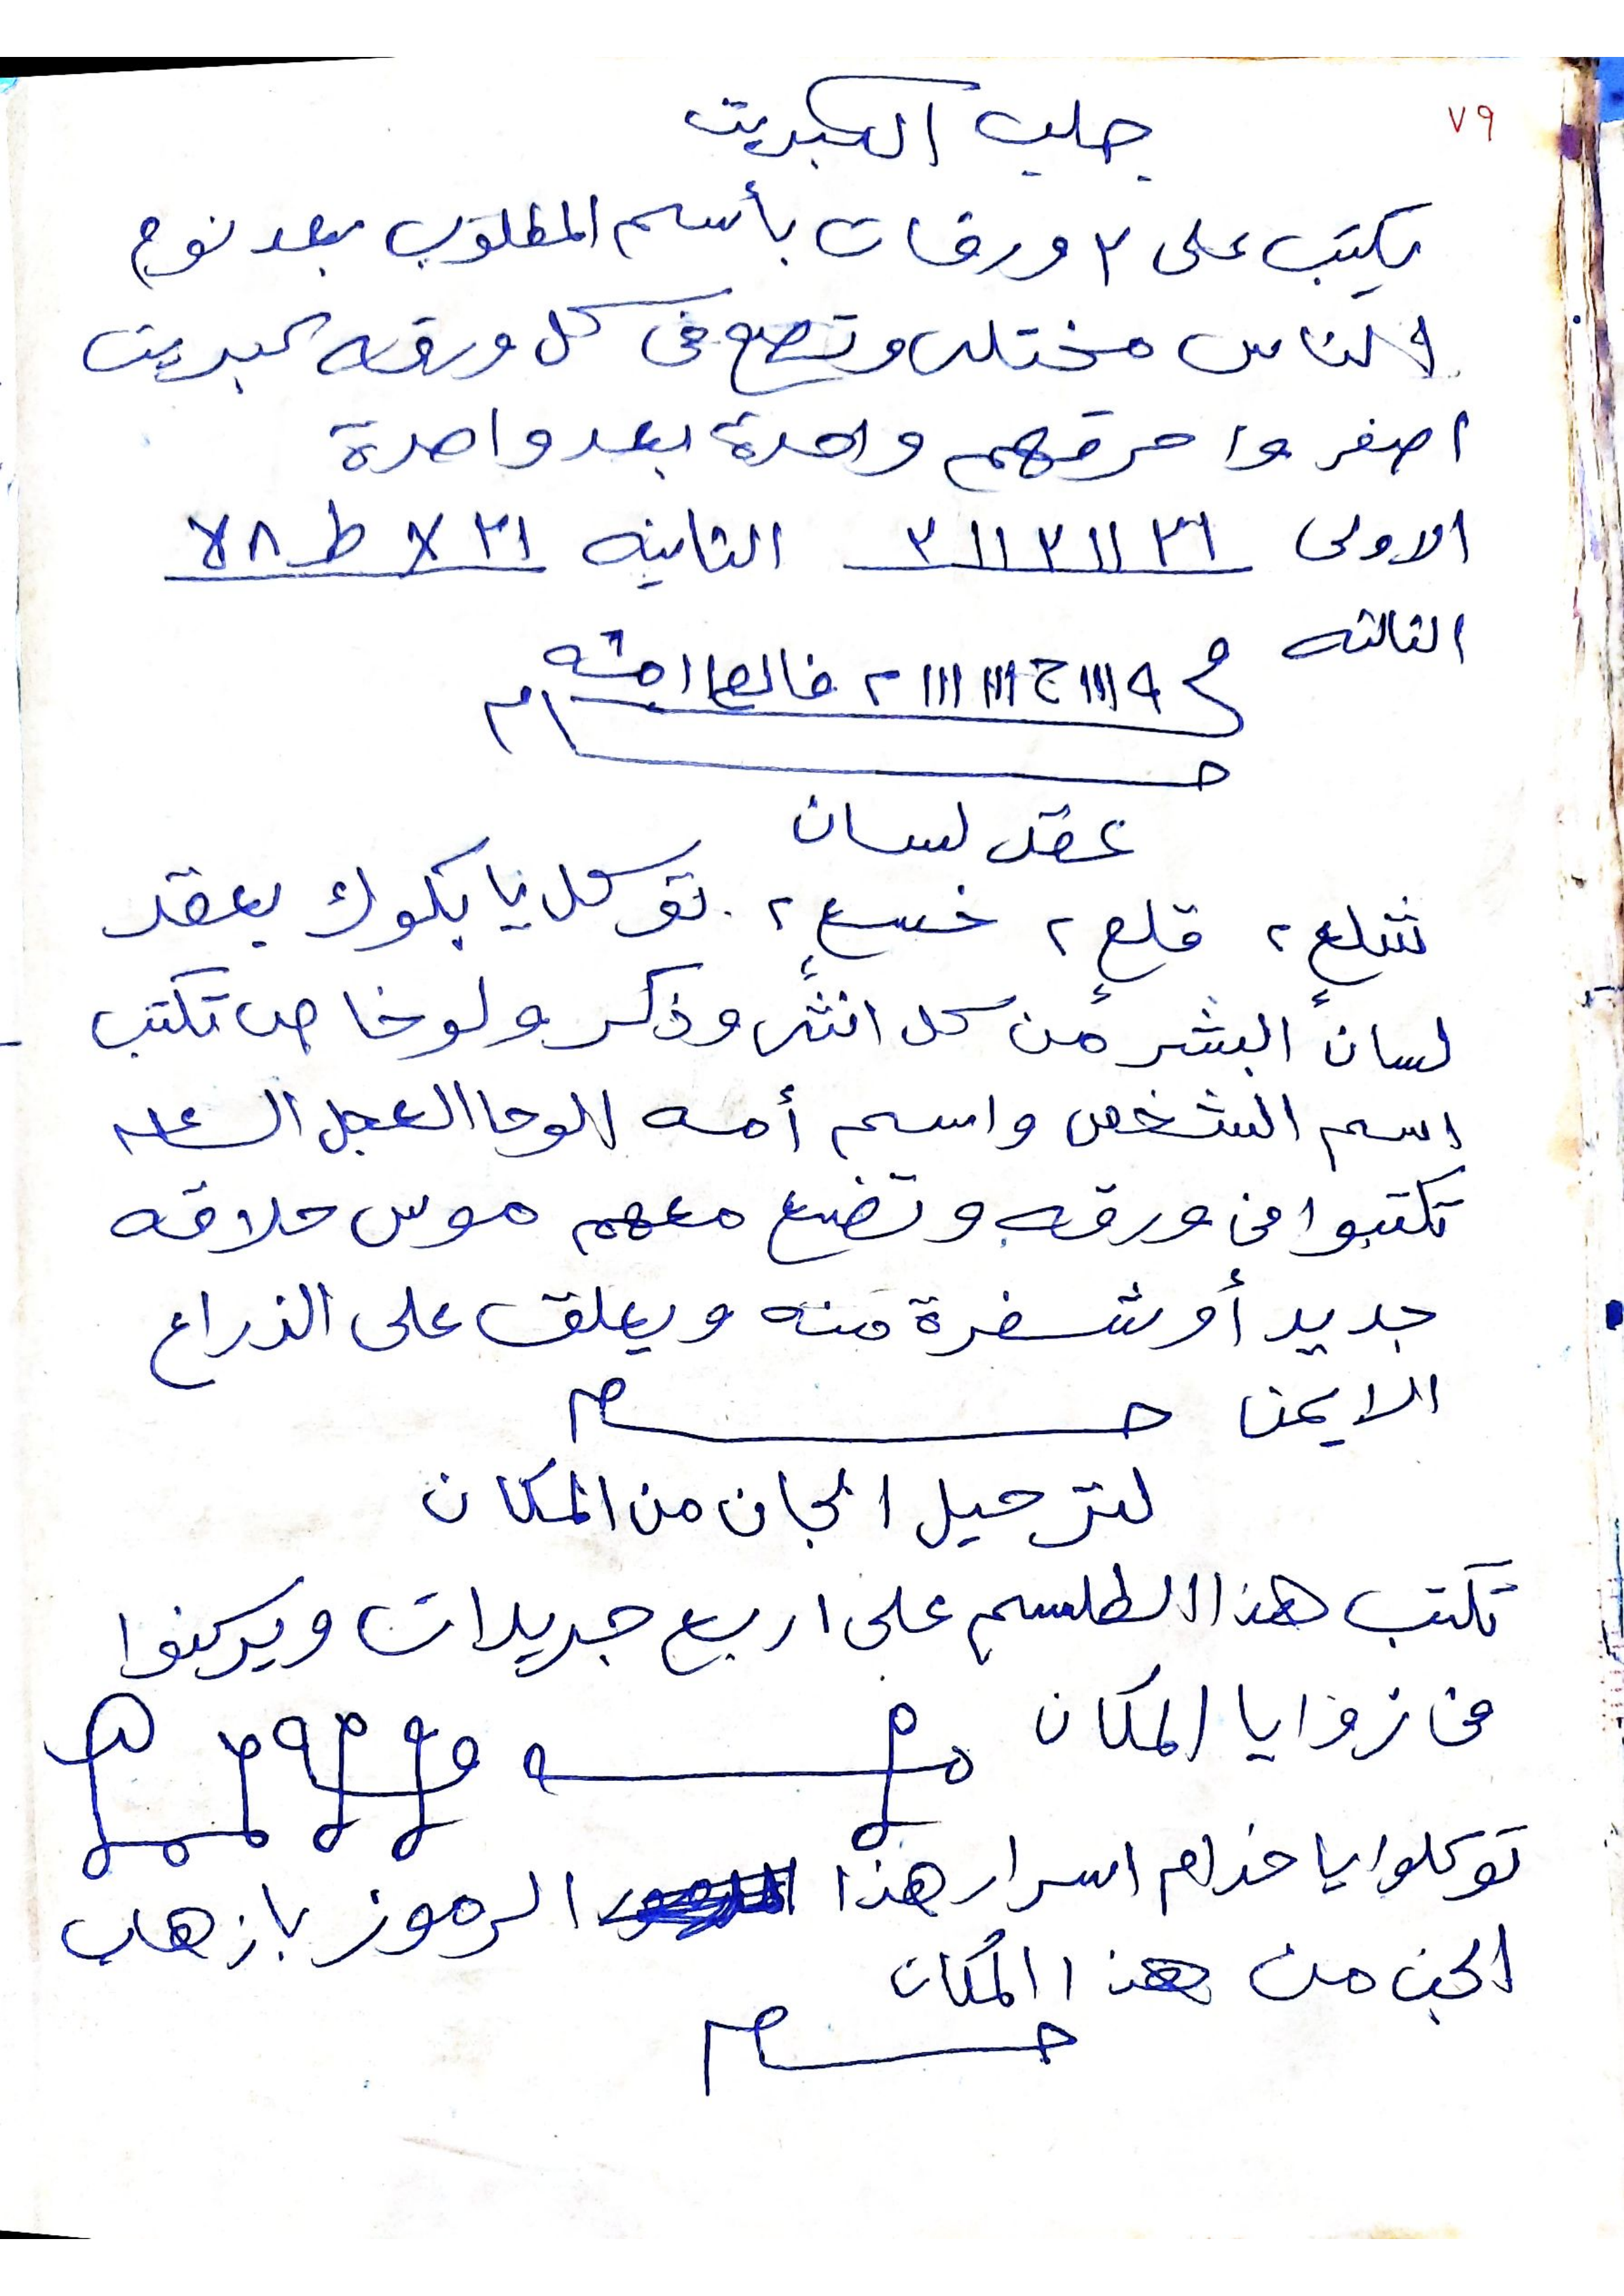 ٧٩
جلب الكبريت
يكتب على ٣ ورقات بأسم المطلوب بعد نوم
الناس مختلى وتضع فى كل ورقه كبريت
اصفر واحرقهم واحدة بعد واحدة
الاولى ٣٦ ١١ ٣ ١١ ٣ الثانيه ٣١ لا ط ٨ لا
الثالثه
عقد لسان
شلع ٢ قلع ٢ خسع ٢ توكل يا بكوك بعقد
لسان البشر من كل انثى وذكر ولو خاص تكتب
اسم الشخص واسم أمه الوحا العجل الساعه
تكتبوا فى ورقه وتضع معهم موس حلاقه
جديد أو شفرة منه ويعلق على الذراع
الايمن
لترحيل الجان من المكان
تكتب هذا الطلسم على اربع جريدات ويركنوا
فى زوايا المكان
توكلوا يا خدام اسرار هذا الرموز باذهاب
الجن من هذا المكان